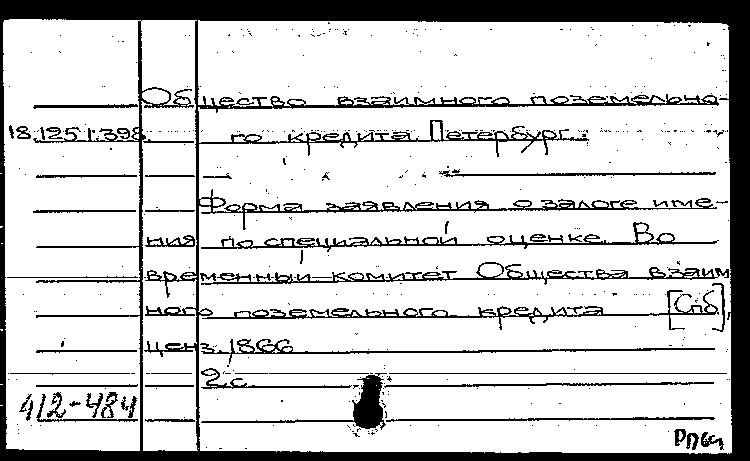 Общество взаимного поземельно-
18.125.1.398. го кредита. Петербург.:
Форма заявления о залоге име-
ния по специальной оценке. Во
временный комитет Общества взаим
ного поземельного кредита [Спб],
ценз. 1866
2 с.
412-484